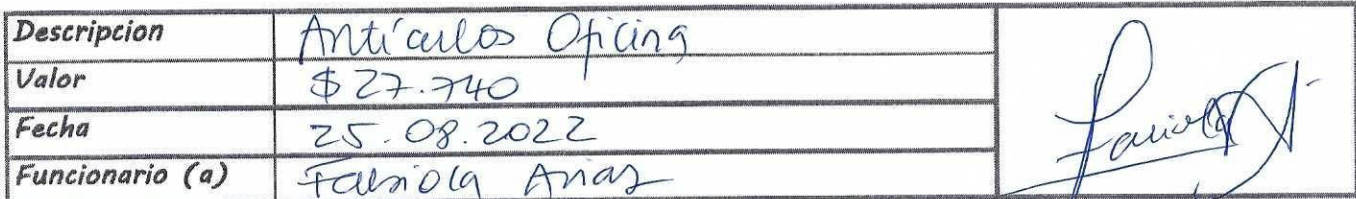 Descripcion Artículos Oficina
Valor $27.740
Fecha 25.08.2022
Funcionario (a) Fabiola Arias
Fabiola A